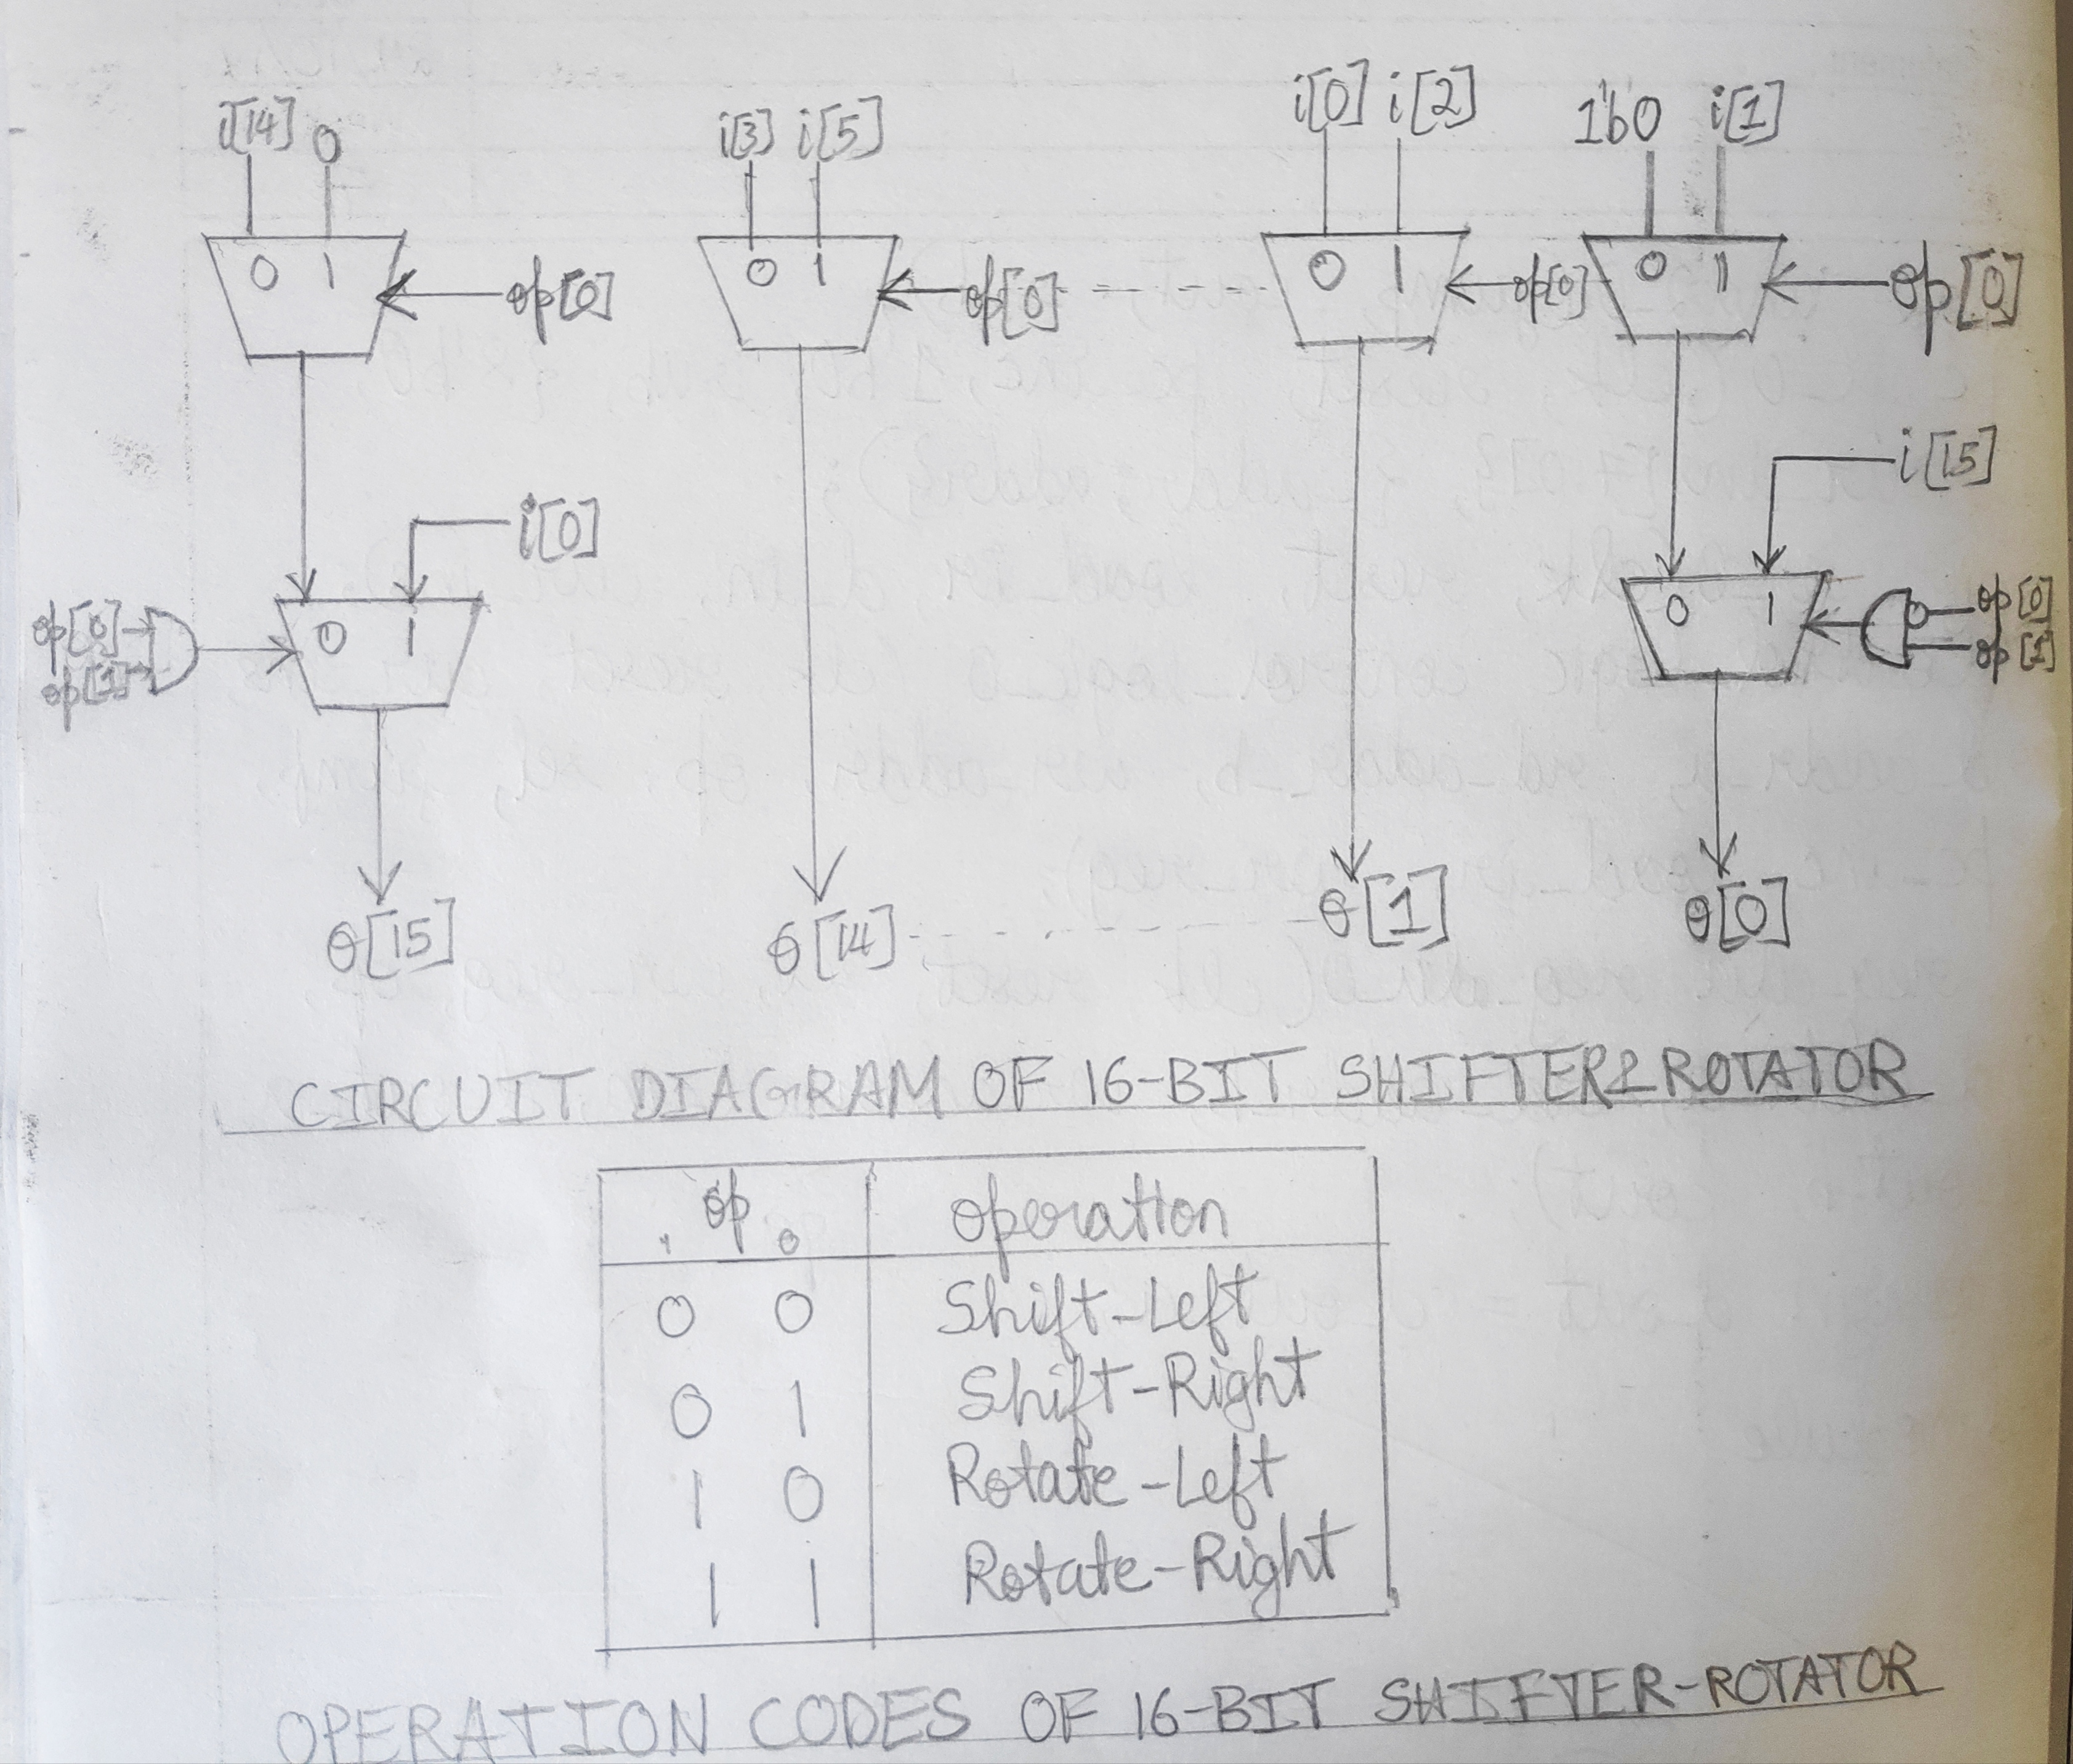 i[14] 0 i[3] i[5] i[0] i[2] 1'b0 i[1]
0 1 op[0] 0 1 op[0] 0 1 op[0] 0 1 op[0]
i[15]
i[0]
op[0] 0 1 0 1 op[0]
op[1] op[1]
o[15] o[14] o[1] o[0]
CIRCUIT DIAGRAM OF 16-BIT SHIFTER & ROTATOR
1 op 0 operation
0 0 Shift-Left
0 1 Shift-Right
1 0 Rotate-Left
1 1 Rotate-Right
OPERATION CODES OF 16-BIT SHIFTER-ROTATOR